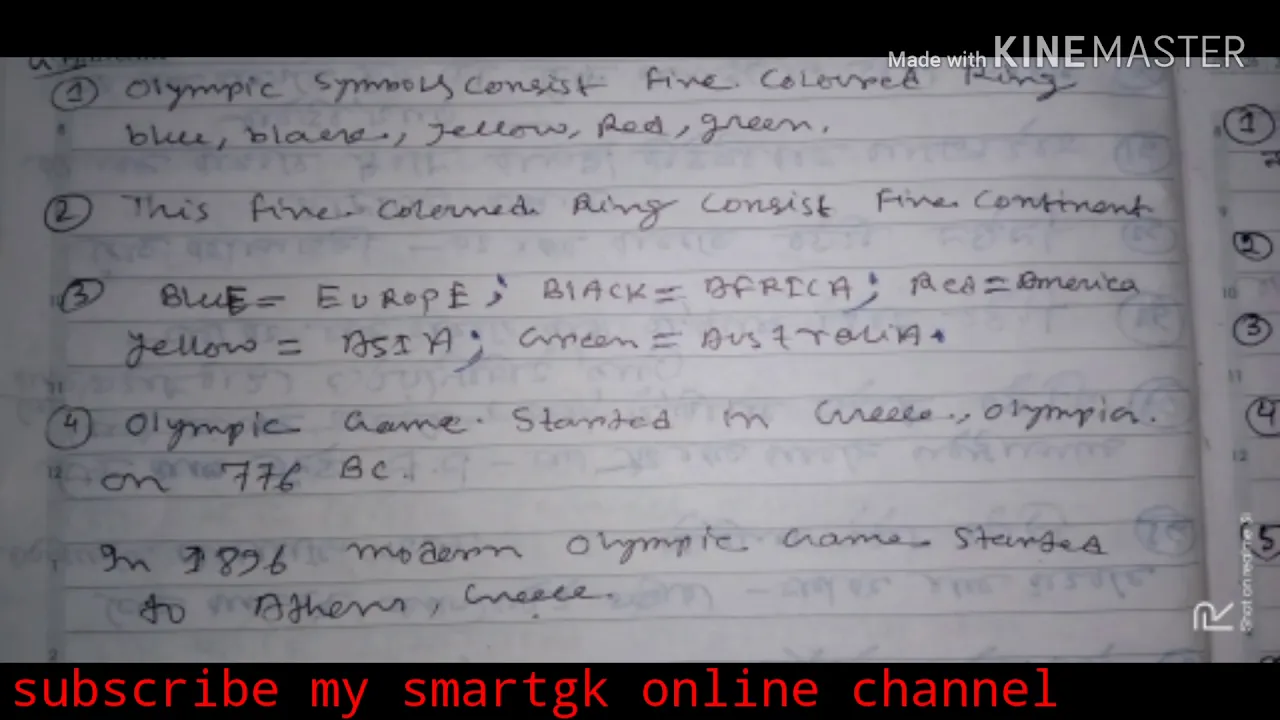 Made with KINEMASTER
① Olympic Symbols Consist Five Coloured Ring
blue, black, yellow, Red, green.
② This five Colerned Ring Consist Five Continent
③ BluE = EUROPE; BlACK = AFRICA; Red = America
yellow = ASIA; Green = AustraliA.
④ Olympic Game Started in Greece, Olympia.
on 776 BC.
In 1896 modern Olympic Game Started
to Athens, Greece.
1
2
3
4
5
Shot on realme
subscribe my smartgk online channel